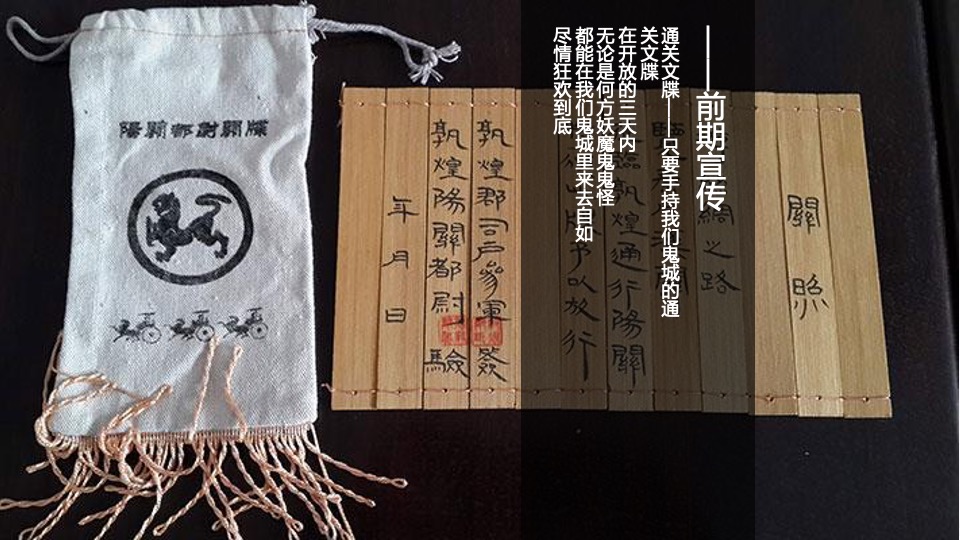 ——前期宣传
通关文牒——只要手持我们鬼城的通
关文牒
在开放的三天内
无论是何方妖魔鬼鬼怪
都能在我们鬼城里来去自如
尽情狂欢到底
關照
綢之路
臨敦煌通行陽關
予以放行
敦煌郡司戶參軍發
敦煌陽關都尉驗
年月日
陽關都尉關牒